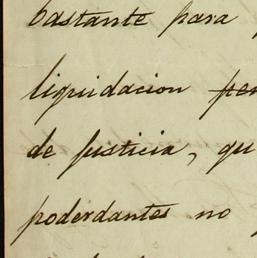 bastante para
liquidacion
de Justicia, qu
poderdantes no